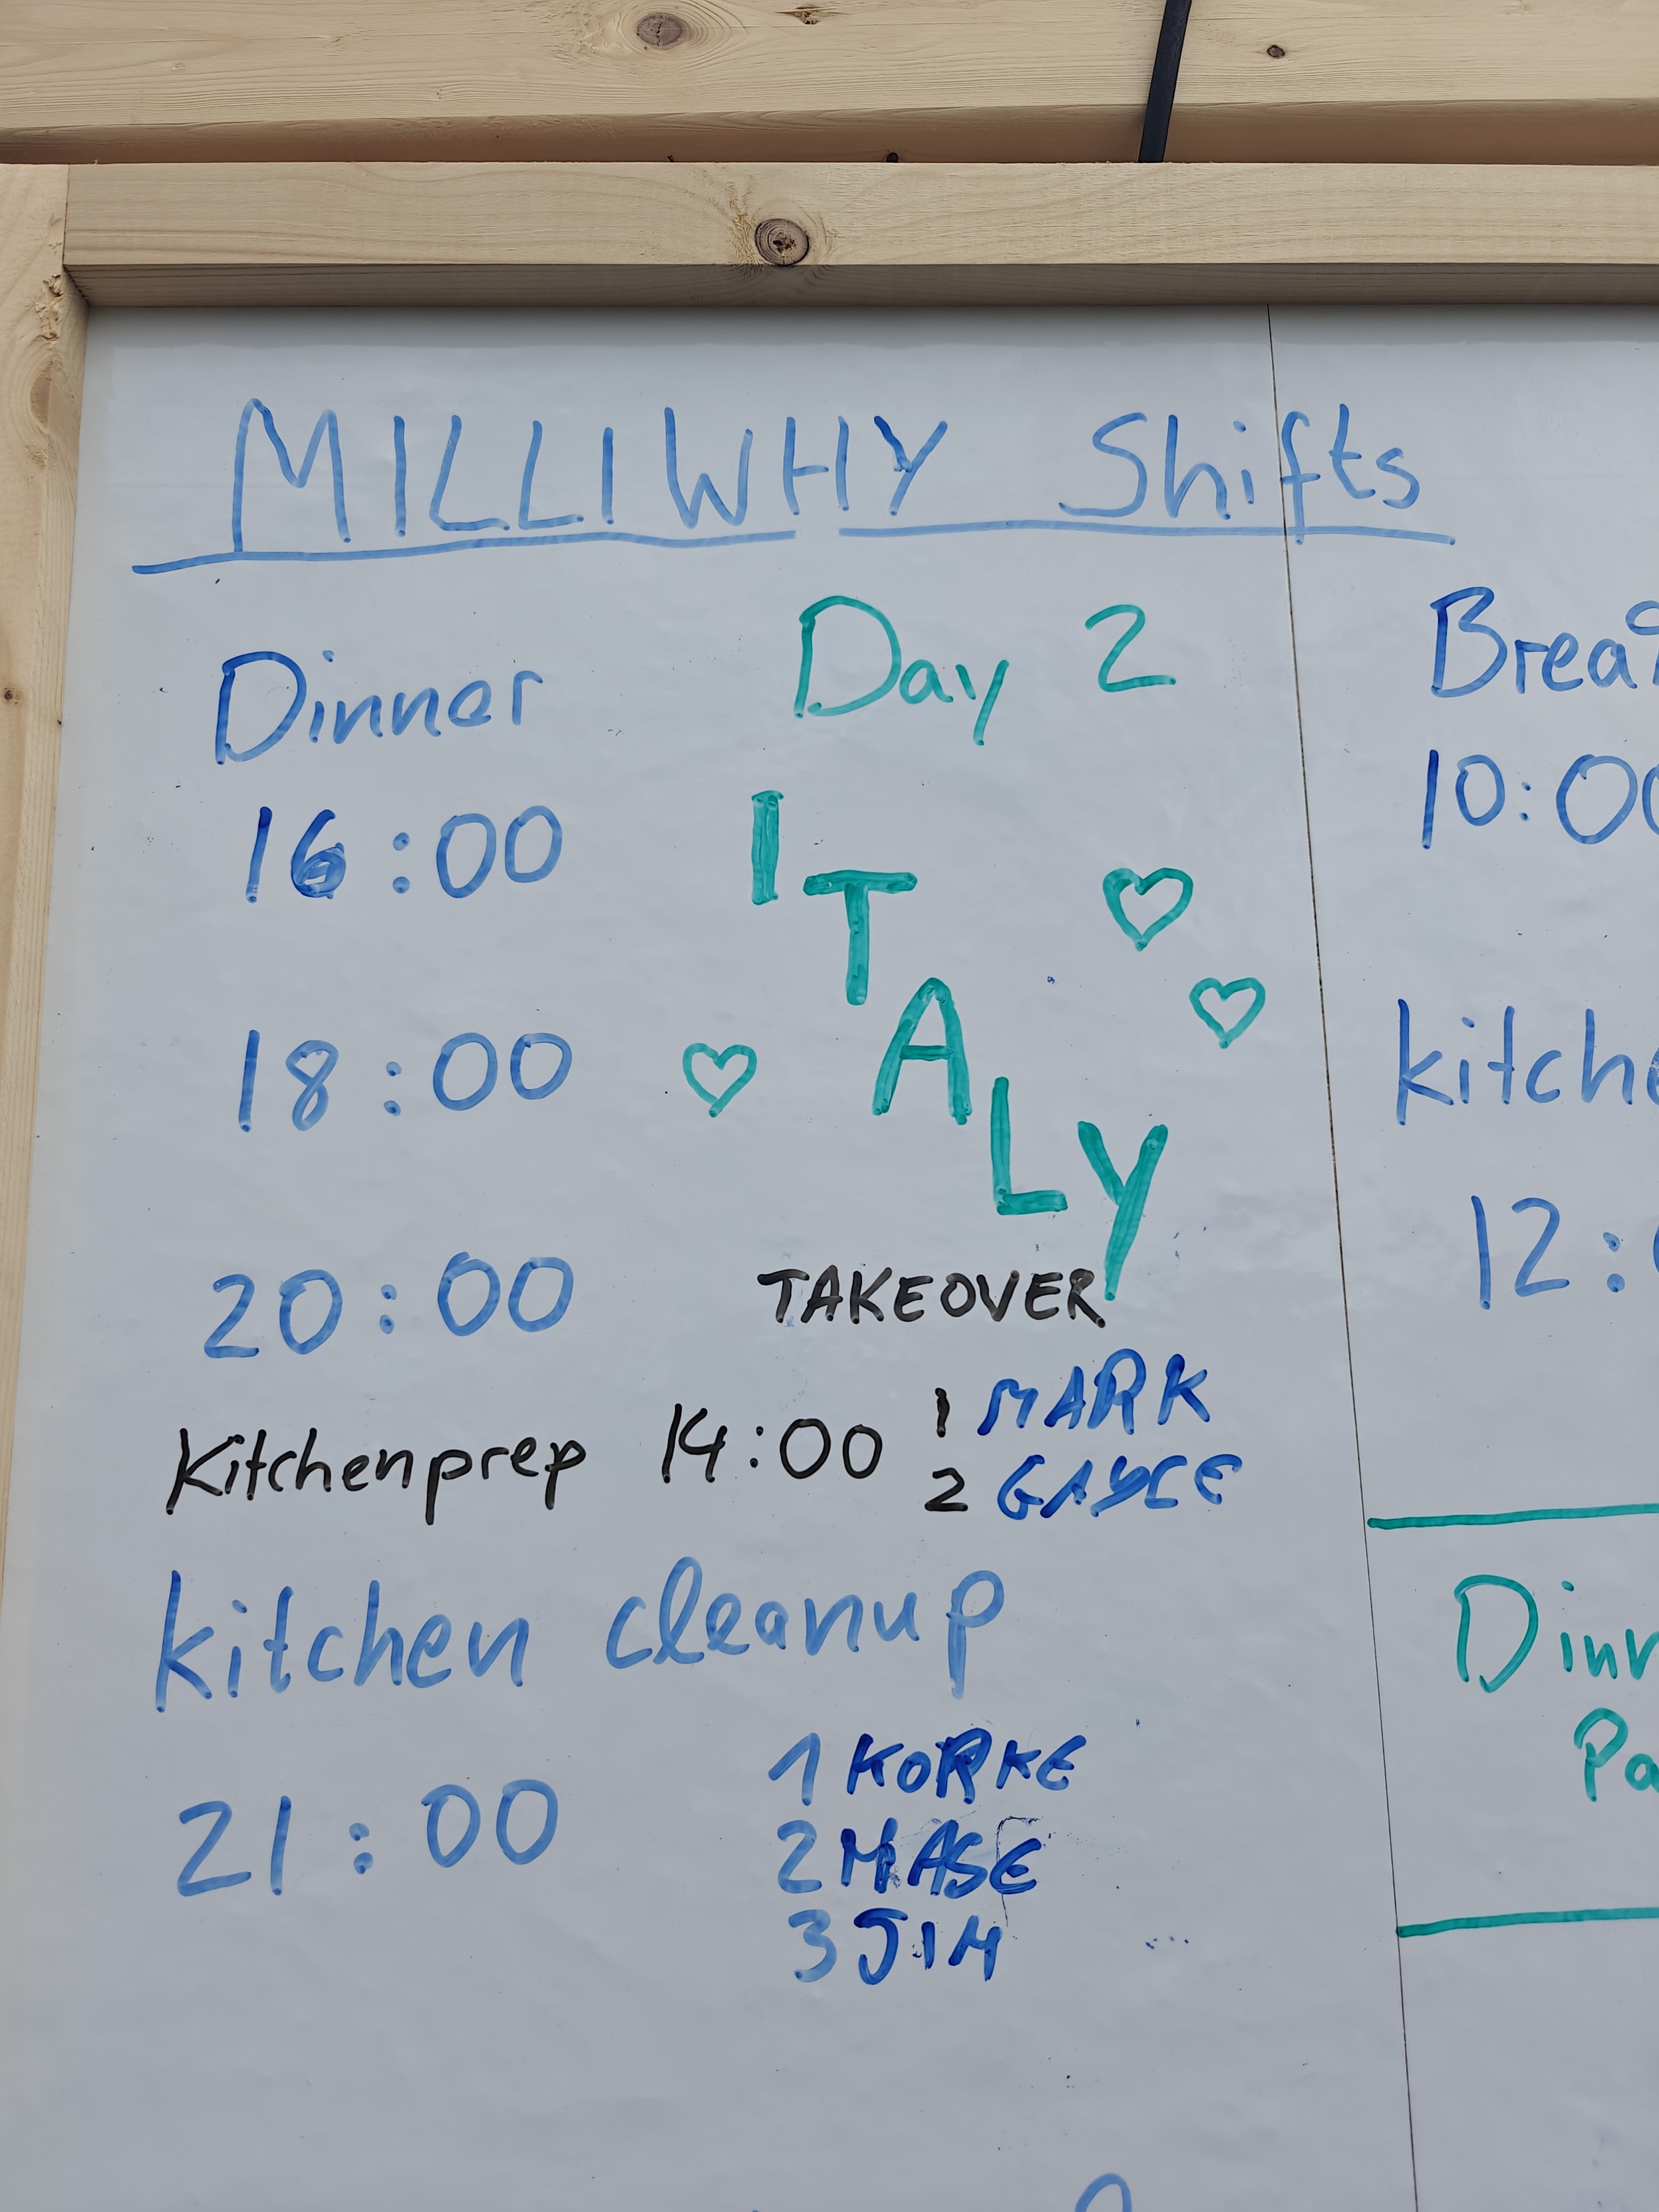 MILLIWHY Shifts
Day 2
Dinner
16:00
ITALY
18:00
20:00
TAKEOVER
Kitchenprep 14:00 1 MARK
2
kitchen cleanup
21:00
1 KORKE
2 MASE
3 JIM
Brea
10:00
kitche
12:
Dinn
Pa